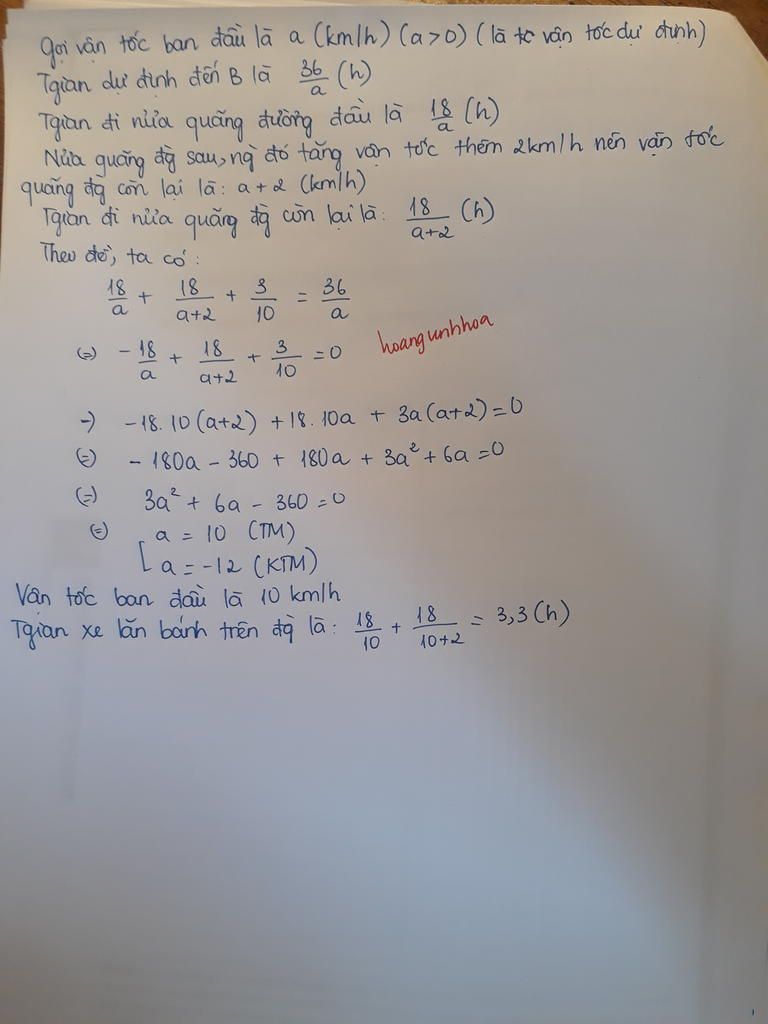 Gọi vận tốc ban đầu là a (km/h) (a>0) (là vận tốc dự định)
Tgian dự định đến B là 36/a (h)
Tgian đi nửa quãng đường đầu là 18/a (h)
Nửa quãng đg sau, ng đó tăng vận tốc thêm 2km/h nên vận tốc
quãng đg còn lại là: a+2 (km/h)
Tgian đi nửa quãng đg còn lại là: 18/(a+2) (h)
Theo đề, ta có:
18/a + 18/(a+2) + 3/10 = 36/a
(=) -18/a + 18/(a+2) + 3/10 = 0
hoangunhhoa
-) -18.10(a+2) + 18.10a + 3a(a+2) = 0
(=) - 180a - 360 + 180a + 3a² + 6a = 0
(=) 3a² + 6a - 360 = 0
(=) [ a = 10 (TM)
a = -12 (KTM)
Vận tốc ban đầu là 10 km/h
Tgian xe lăn bánh trên đg là: 18/10 + 18/(10+2) = 3,3 (h)